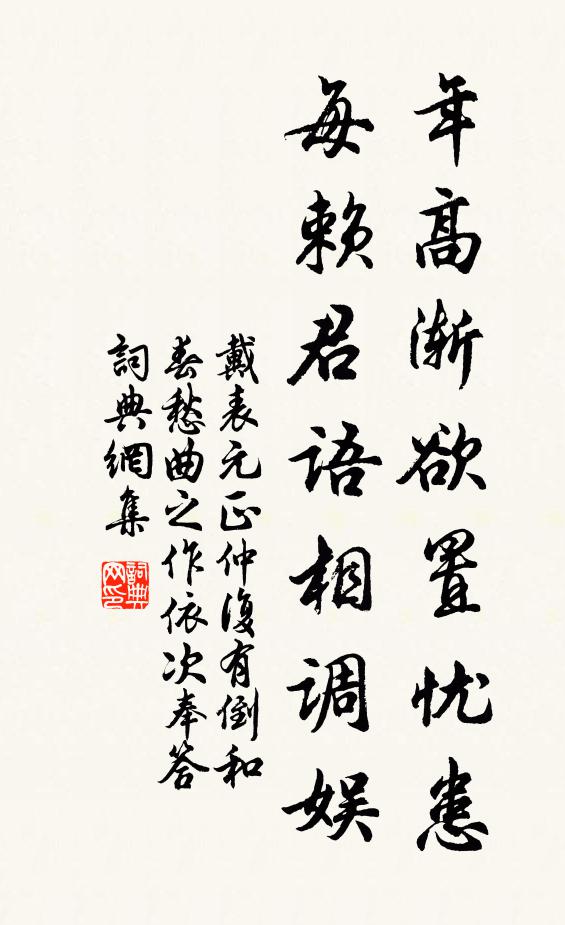 年高渐欲置忧患
每赖君语相调娱
戴表元正仲復有倒和
春愁曲之作依次奉答
詞典網集
詞典网印